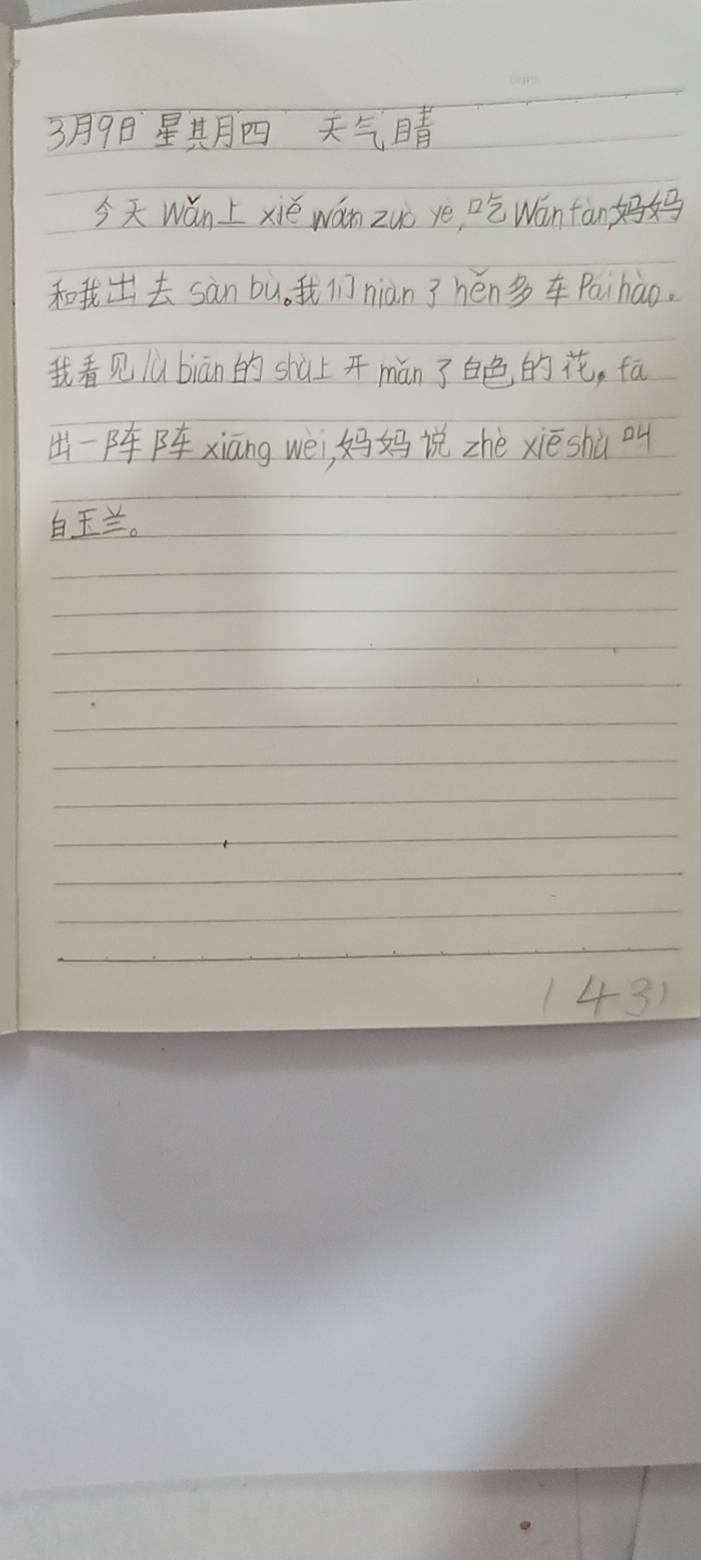 3月9日 星期四 天气晴
今天wǎn上xiě wán zuò yè,吃wán fàn,妈妈
和我出去sàn bù。我们niàn了hěn多车Pái hào。
我看见lù biān的shù上开mǎn了白色的花。fā
出一阵阵xiāng wèi,妈妈说zhè xiē shù叫
白玉兰。
(43)